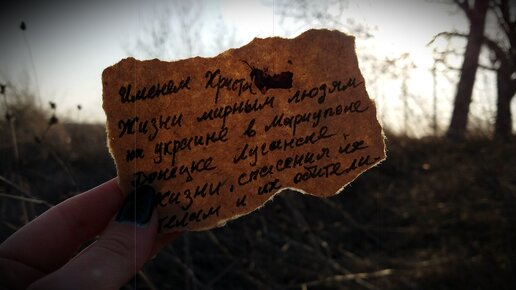 Именем Христа
Жизни мирным людям
на украине в Мариуполе
Донецке Луганске.
Жизни, спасения их
телам и их обители.